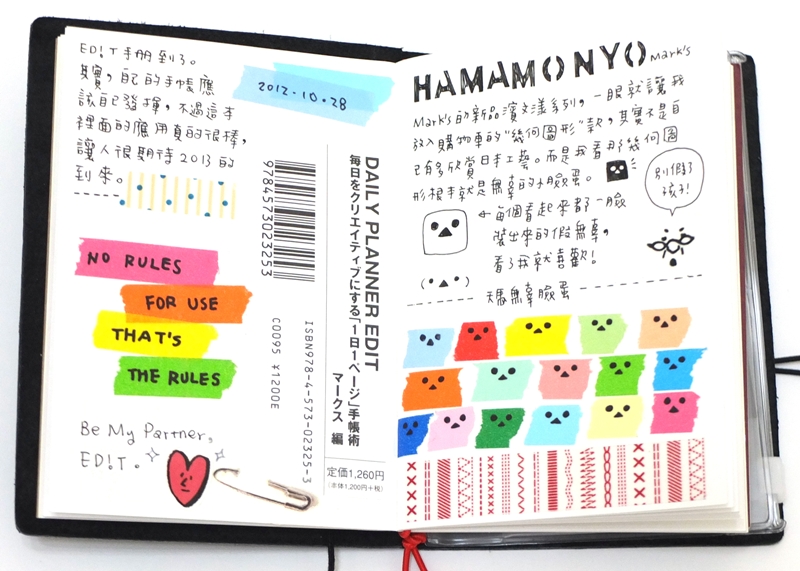 EDiT手冊到了。
其實,自己的手帳應
該自己發揮,不過這本
裡面的應用真的很棒,
讓人很期待2013的
到來。
2012.10.28
NO RULES
FOR USE
THAT'S
THE RULES
Be My Partner,
EDiT.
9784573023253
ISBN978-4-573-02325-3
C0095 ¥1200E
DAILY PLANNER EDIT
毎日をクリエイティブにする「1日1ページ」手帳術
マークス 編
定価1,260円
(本体1,200円+税)
HAMAMONYO Mark's
Mark's的新品濱文樣系列,一眼就讓我
放入購物車的"幾何圖形"款,其實不是自
己有多欣賞日本工藝。而是我看那幾何圖
形根本就是無辜的小臉蛋。
←每個看起來都一臉
裝出來的假無辜,
看了我就喜歡!
別假了
孩子!
無辜臉蛋